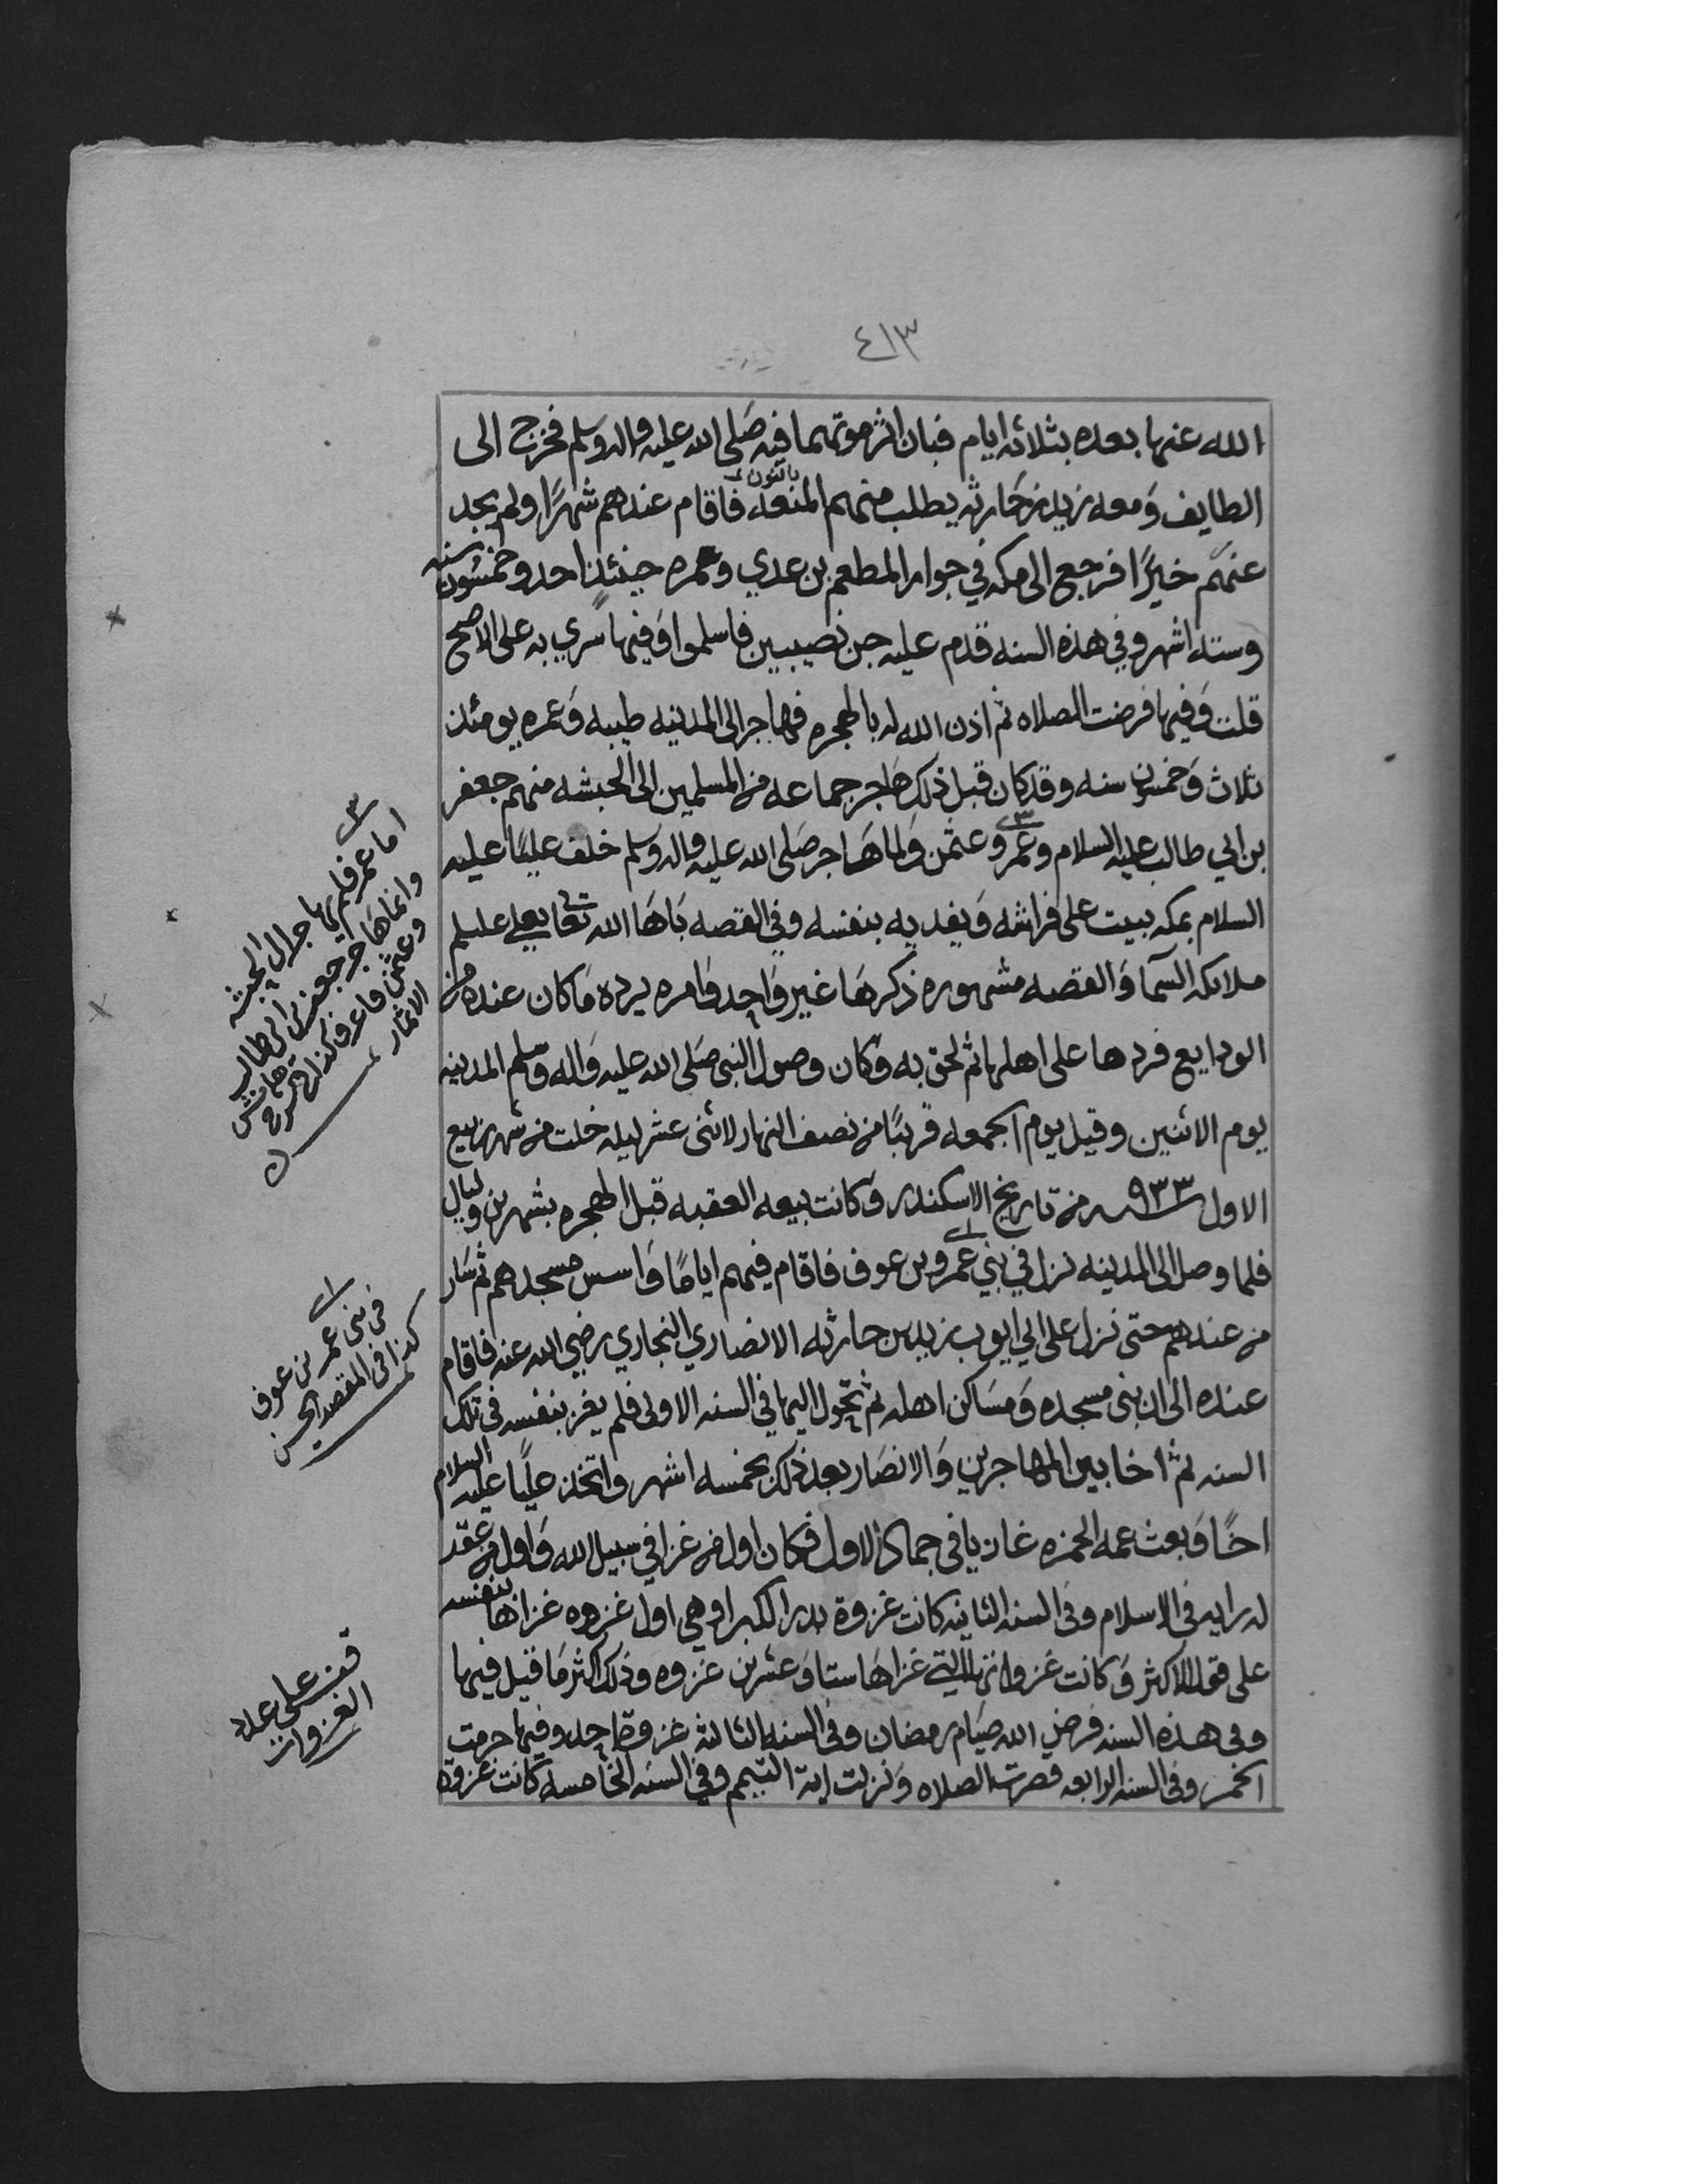 ٤١٣
الله عنها بعده بثلاثه ايام فبان اثر موتهما فيه صَلى الله عليه واله وسلم فخرج الى
الطايف وَمعه زيد بن حَارثه يطلب منهم المنعه فاقام عندهم شهرًا ولم يجد
بالنون
عندهم خيرًا فرجع الى مكه في جوار المطعم بن عدي وعمره حينئذٍ احد وخمسُون سنه
وسته اشهر وفي هذه السنه قدم عليه جن نصيبين فاسلموا وَفيها اسري به على الاصح
قلت وَفيها فرضت الصلاه ثم اذن الله له بالهجره فهاجر الى المدينه طيبه وَعمره يومئذ
ثلاث وَخمسون سنه وقد كان قبل ذلك هَاجر جماعه من المسلمين الى الحبشه منهم جعفر
بن ابي طالب عليه السلام وعمر وعثمن وَلما هَاجر صَلى الله عليه واله وَسلم خلف عليًا عليه
السلام بمكه يبيت على فراشه وَيفديه بنفسه وفي القصه بَاهَا الله تعالى بعلي عليلم
ملائكه السمآ وَالقصه مشهوره ذكرهَا غير وَاحد وَامره برده مَا كان عنده من
الودايع فردها على اهلها ثم لحق به وَكان وصول النبي صَلى الله عليه وَاله وسَلم المدينه
يوم الاثنين وقيل يوم الجمعه قريبًا من نصف النهار لاثنى عشر ليله خلت من شهر ربيع
الاول ٩٣٣ من تاريخ الاسكندر وَكانت بيعه العقبه قبل الهجره بشهرين وليال
فلما وصل الى المدينه نزل في بني عمرو بن عوف فاقام فيهم ايامًا وَاسس مسجدهم ثم سَار
من عندهم حتى نزل على ابي ايوب زيد بن حارثه الانصاري النجاري رضي الله عنه فاقام
عنده الى ان بنى مسجده وَمسَاكن اهله ثم تحول اليها في السنه الاولى فلم يغز بنفسه في تلك
السنه ثم اخا بين المهاجرين وَالانصَار بعد ذلك بخمسه اشهر واتخذ عليًا عليه السلام
اخًا وَبعث عمه الحمزه غازيا في جماد الاول فكان اول من غزا في سبيل الله وَاول من عقد
له رايه في الاسلام وفي السنه الثانيه كانت غزوة بدر الكبرا وهي اول غزوه غزاها بنفسه
على قول الاكثر وَكانت غزواته التي غزاهَا ستا وَعشرين غزوه وذلك اكثر مَا قيل فيها
وفي هذه السنه فرض الله صيَام رمضان وفي السنه الثالثه غزوة احد وفيها حرمت
الخمر وفي السنه الرابعه قصرت الصلاه وَنزلت اية التيمم وفي السنه الخامسه كانت غزوة
اما عمر فلم يهاجر الى الحبشه
وانما هَاجر جعفر بن ابي طالب
وعثمن فاعرف كذا
في بني عمر بن عوف
كذا في المقصد الحسن
قف على عدد
الغزوات